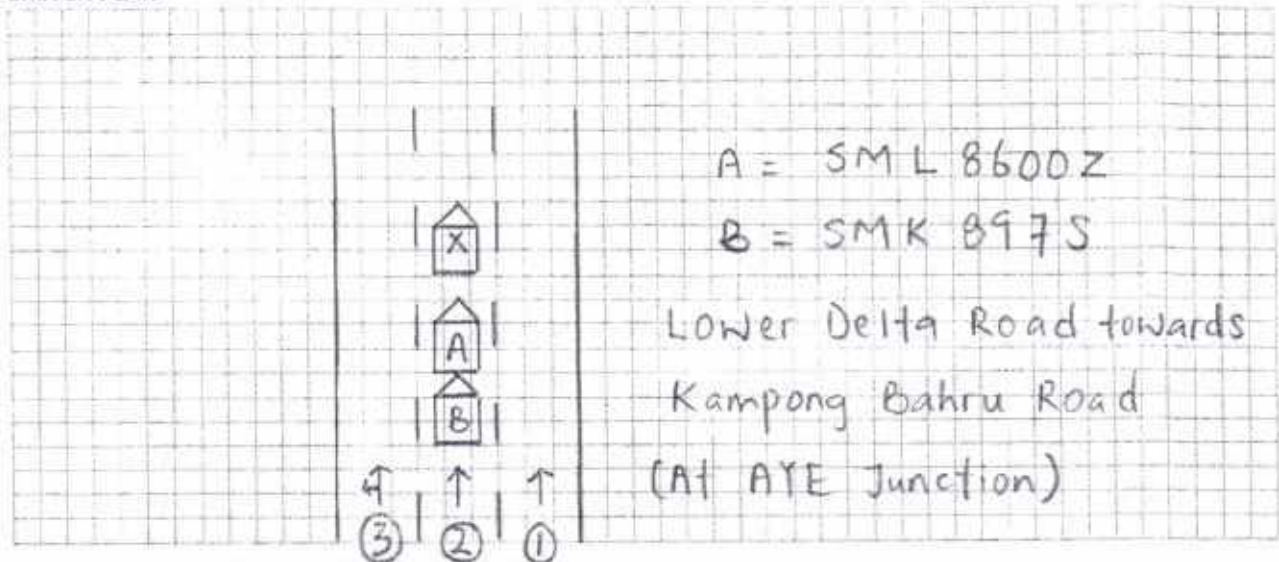 A = SML 8600Z
X
B = SMK 897S
A
Lower Delta Road towards
B
Kampong Bahru Road
(At AYE Junction)
3 2 1